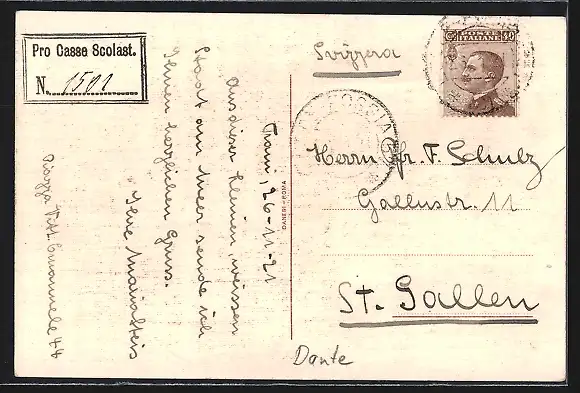 Pro Casse Scolast.
N. 1501
POSTE ITALIANE
C. 40
Svizzera
FOGGIA
Trani, 26-11-21
Aus dieser kleinen, weissen
Stadt am Meer sende ich
Ihnen herzlichen Gruss.
Ihre
Piazza Vitt. Emanuele 44
DANESI-ROMA
Herrn Fr. F. Schulz
Gallusstr. 11
St. Gallen
Dante